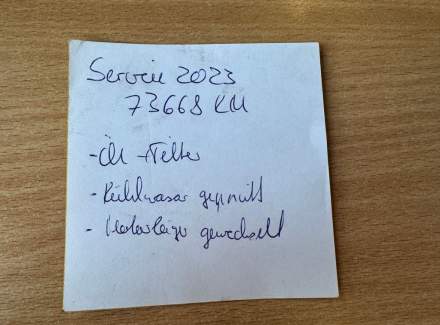 Service 2023
73668 KM
- Öl + Filter
- Kühlwasser geprüft
- gewechselt